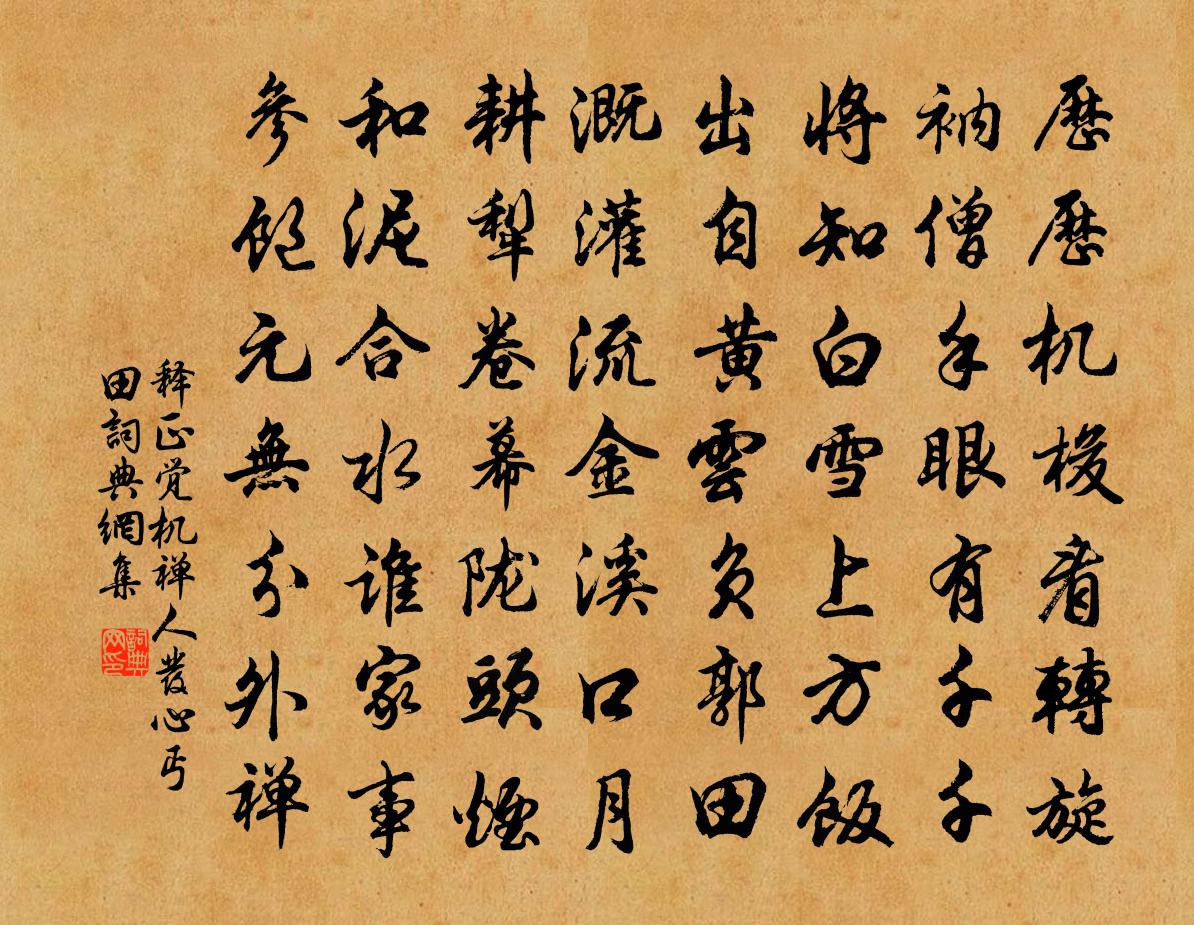 歷歷机梭看轉旋
衲僧手眼有千千
將知白雪上方飯
出自黃雲負郭田
溉灌流金溪口月
耕犁卷幕陇頭煙
和泥合水谁家事
參飽元無分外禅
释正觉机禅人發心丐
田詞典網集
詞典网印